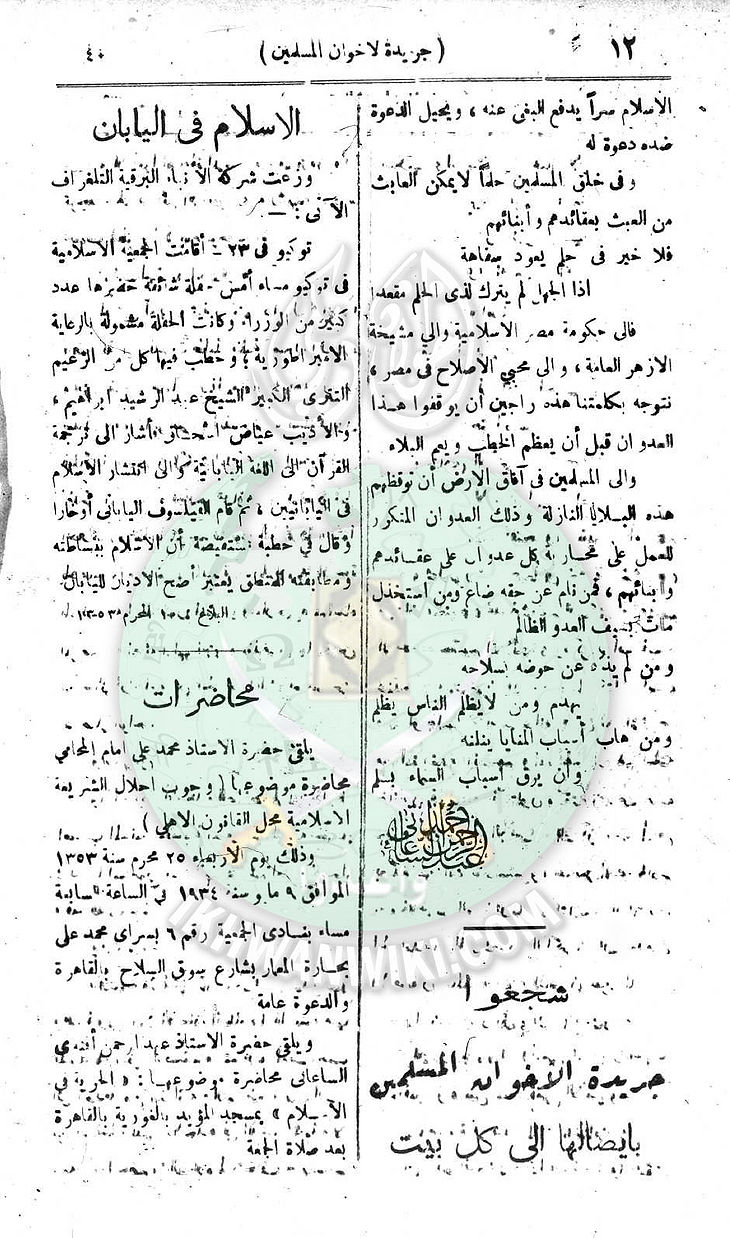 ١٢
( جريدة الاخوان المسلمين )
٤٠
الاسلام سراً يدفع البغى عنه ، ويحيل الدعوة
ضده دعوة له
وفى خلق المسلمين حلماً لايمكن العابث
من العبث بعقائدهم وأبنائهم
فلا خير فى حلم يعود سفاهة
اذا الجهل لم يترك لذى الحلم مقعدا
فالى حكومة مصر الاسلامية والي مشيخة
الازهر العامة ، والى محبي الاصلاح فى مصر ،
نتوجه بكلمتنا هذه راجين أن يوقفوا هذا
العدوان قبل أن يعظم الخطب ويعم البلاء
والى المسلمين فى آفاق الأرض أن توقظهم
هذه البلايا النازلة وذلك العدوان المتكرر
للعمل على محاربة كل عدوان على عقائدهم
وأبنائهم ، فمن نام عن حقه ضاع ومن استخذل
مات بسيف العدو الظالم
ومن لم يذد عن حوضه بسلاحه
يهدم ومن لايظلم الناس يظلم
ومن هاب أسباب المنايا ينلنه
وأن يرق أسباب السماء بسلم
شجعوا
جريدة الاخوان المسلمين
بايصالها الى كل بيت
الاسلام فى اليابان
وزعت شركة الأنباء البرقية التلغراف
الآتى : ــ
توكيو فى ٢٣ ــ أقامت الجمعية الاسلامية
فى توكيو مساء أمس حفلة شائقة حضرها عدد
كبير من الوزراء وكانت الحفلة مشمولة بالرعاية
الامبراطورية ، وخطب فيها كل من الزعيم
التترى الكبير الشيخ عبد الرشيد ابراهيم ،
والأديب عياض اسحاق أشار الى ترجمة
القرآن الى اللغة اليابانية والى انتشار الاسلام
فى اليابانيين ، ثم قام الفيلسوف اليابانى أوخارا
وقال في خطبة مستفيضة أن الاسلام ببساطته
ومطابقته للمنطق يعتبر أصح الاديان لليابان
محاضرات
يلقى حضرة الاستاذ محمد على امام المحامي
محاضرة موضوعها ( وجوب احلال الشريعة
الاسلامية محل القانون الاهلى )
وذلك يوم الأربعاء ٢٥ محرم سنة ١٣٥٣
الموافق ٩ مايو سنة ١٩٣٤ فى الساعة السابعة
مساء بنادى الجمعية رقم ٦ بسراى محمد على
بحارة المعمار بشارع سوق السلاح بالقاهرة
والدعوة عامة
ويلقى حضرة الاستاذ عبد الرحمن أفندى
الساعاتى محاضرة موضوعها : « الحرية في
الاسلام » بمسجد المؤيد بالغورية بالقاهرة
بعد صلاة الجمعة
IKHWANWIKI.COM